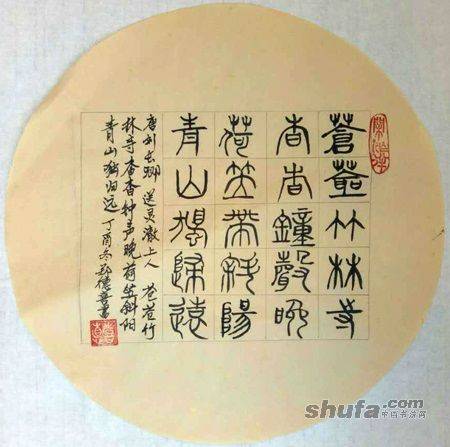 蒼蒼竹林寺
杳杳鐘聲晚
荷笠帶斜陽
青山獨歸遠
唐刘长卿 送灵澈上人 苍苍竹
林寺杳杳钟声晚荷笠斜阳
青山独归远丁酉冬德书
shufa.com
中国书法网